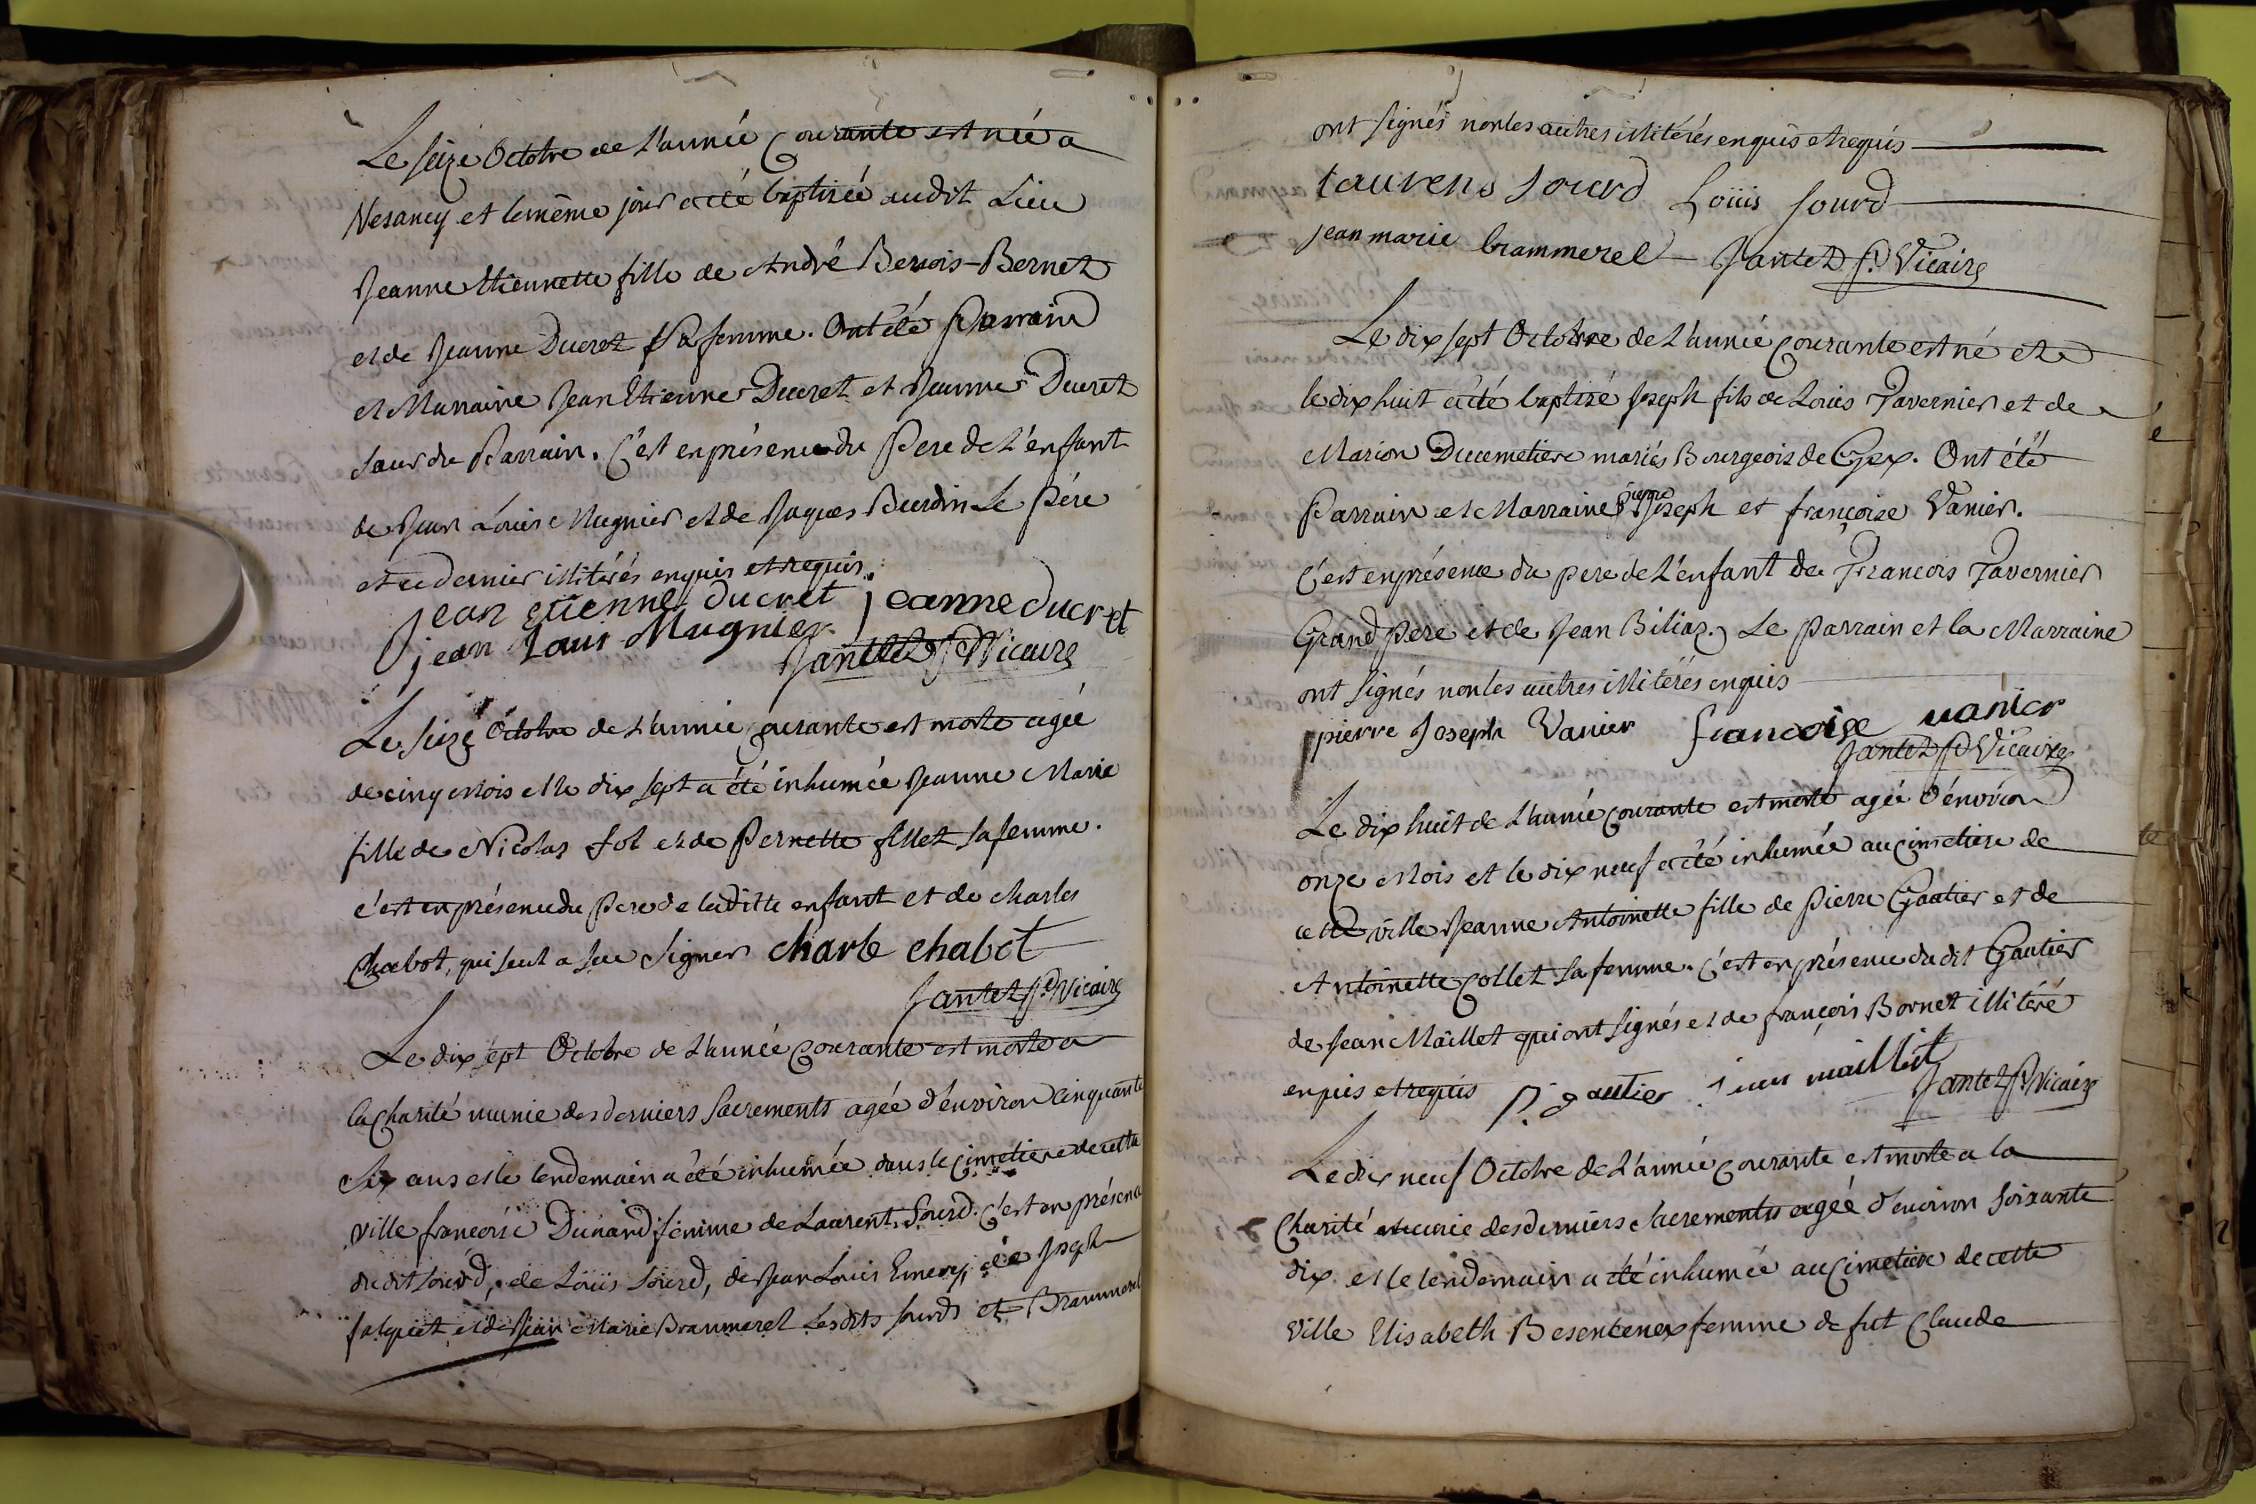 Le seize Octobre de L'année courante est née a
Vesancy et le même jour a été baptisée audit Lieu
Jeanne Etiennette fille de André Bernois-Bernet
et de Jeanne Ducret Sa femme. Ont été Parrain
et Marraine Jean Etienne Ducret et Jeanne Ducret
Sœur du Parrain. C'est en présence du Pere de L'enfant
de Jean Louis Mugnier et de Jaques Burdin Le Pére
et ce dernier illitérés enquis et requis.
jean etienne ducret jeanne ducret
jean Louis Mugnier. Jantet Pr. Vicaire
Le Seize Octobre de L'année courante est morte agée
de cinq Mois et le dix sept a été inhumée Jeanne Marie
fille de Nicolas fol et de Pernette fillet sa femme.
c'est en présence du Pere de laditte enfant et de charles
Chabot, qui seul a Sçu Signer charle chabot
Jantet Pr. Vicaire
Le dix sept Octobre de L'année courante est morte a
la Charité munie des derniers Sacrements agée d'environ cinquante
Six ans et le lendemain a été inhumée dans le cimetiere de cette
ville francoise Dunand femme de Laurent Sourd. c'est en présence
du dit Sourd, de Loüis Sourd, de Jean Louis Emery, de Joseph
falquet, et de Jean Marie Brammerel Lesdits Sourds et Brammerel
ont signés non les autres illitérés enquis et requis
Laurens Sourd Loüis Sourd
jean marie brammerel Jantet Pr. Vicaire
Le dix sept Octobre de L'année courante est né et
le dix huit a été baptisé Joseph fils de Louis Tavernier et de
Marion Ducemetiere mariés Bourgeois de Gex. Ont été
Parrain et Marraine pierre Joseph et françoise Vanier.
C'est en présence du pere de L'enfant de François Tavernier
Grand Pere et de Jean Biliaz. Le parrain et la Marraine
ont signés non les autres illitérés enquis
pierre Joseph Vanier francoise vanier
Jantet Pr. Vicaire
Le dix huit de L'année courante est morte agée d'environ
onze Mois et le dix neuf a été inhumée au cimetiere de
cette ville Jeanne Antoinette fille de Pierre Gautier et de
Antoinette Collet Sa femme. C'est en présence du dit Gautier
de Jean Maillet qui ont signés et de françois Bornet illitéré
enquis et requis P. gautier jean maillet
Jantet Pr. Vicaire
Le dix neuf Octobre de L'année courante est morte a la
Charité munie des derniers Sacrements agée d'environ Soixante
dix et le lendemain a été inhumée au cimetiere de cette
ville Elisabeth Besentenex femme de fut Claude